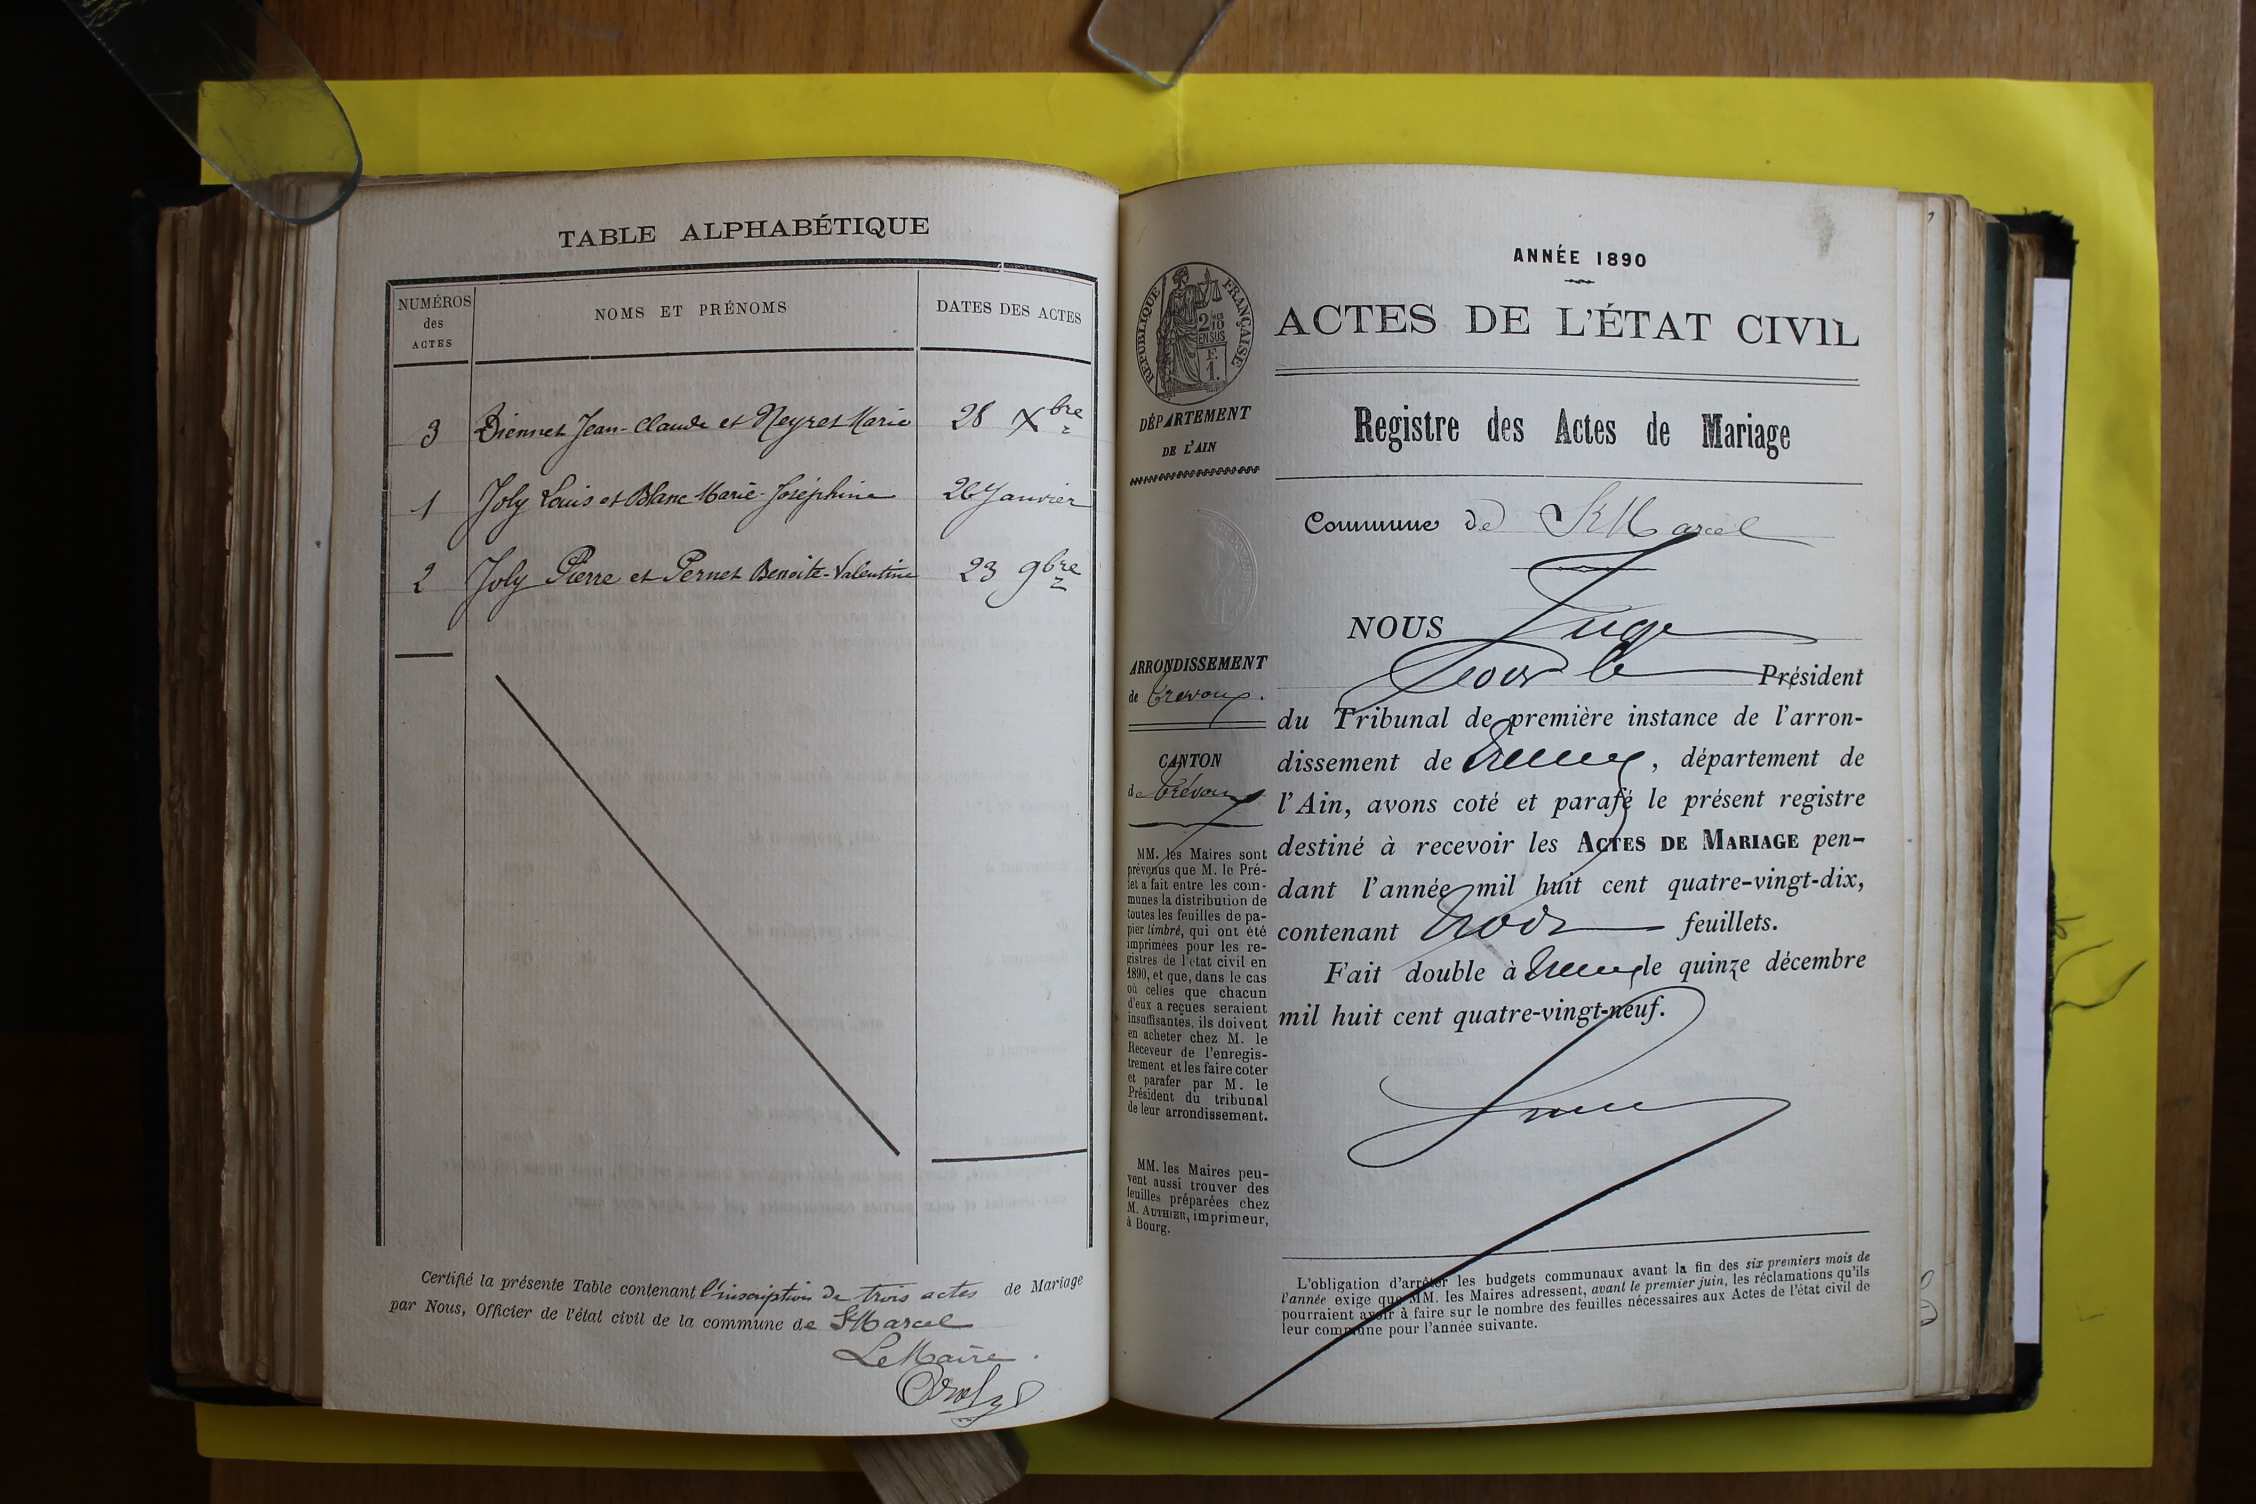 TABLE ALPHABÉTIQUE
NUMÉROS
des
ACTES
NOMS ET PRÉNOMS
DATES DES ACTES
3 Diennet Jean-Claude et Neyret Marie 28 Xbre
1 Joly Louis et Blanc Marie-Joséphine 26 Janvier
2 Joly Pierre et Pernet Benoite-Valentine 23 9bre
Certifié la présente Table contenant l'inscription de trois actes de Mariage
par Nous, Officier de l'état civil de la commune de St Marcel
Le Maire
ANNÉE 1890
ACTES DE L'ÉTAT CIVIL
RÉPUBLIQUE FRANÇAISE
2/10
EN SUS
F.
1.
DÉPARTEMENT
DE L'AIN
Registre des Actes de Mariage
Commune de St Marcel
NOUS Juge
pour le Président
du Tribunal de première instance de l'arron-
dissement de Trévoux, département de
l'Ain, avons coté et parafé le présent registre
destiné à recevoir les ACTES DE MARIAGE pen-
dant l'année mil huit cent quatre-vingt-dix,
contenant trois feuillets.
Fait double à Trévoux le quinze décembre
mil huit cent quatre-vingt-neuf.
ARRONDISSEMENT
de Trévoux.
CANTON
de Trévoux
MM. les Maires sont
prévenus que M. le Pré-
fet a fait entre les com-
munes la distribution de
toutes les feuilles de pa-
pier timbré, qui ont été
imprimées pour les re-
gistres de l'état civil en
1890, et que, dans le cas
où celles que chacun
d'eux a reçues seraient
insuffisantes, ils doivent
en acheter chez M. le
Receveur de l'enregis-
trement et les faire coter
et parafer par M. le
Président du tribunal
de leur arrondissement.
MM. les Maires peu-
vent aussi trouver des
feuilles préparées chez
M. AUTHIER, imprimeur,
à Bourg.
L'obligation d'arrêter les budgets communaux avant la fin des six premiers mois de
l'année exige que MM. les Maires adressent, avant le premier juin, les réclamations qu'ils
pourraient avoir à faire sur le nombre des feuilles nécessaires aux Actes de l'état civil de
leur commune pour l'année suivante.